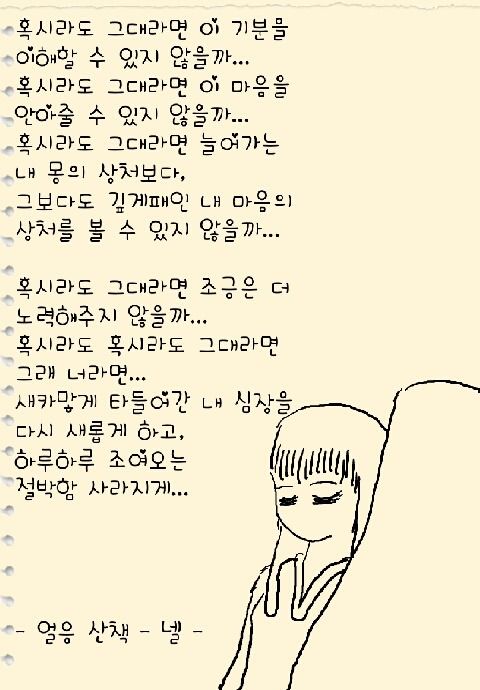 혹시라도 그대라면 이 기분을
이해할 수 있지 않을까...
혹시라도 그대라면 이 마음을
안아줄 수 있지 않을까...
혹시라도 그대라면 늘어가는
내 몽의 상처보다,
그보다도 깊게패인 내 마음의
상처를 볼 수 있지 않을까...

혹시라도 그대라면 조금은 더
노력해주지 않을까...
혹시라도 혹시라도 그대라면
그래 너라면...
새카맣게 타들어간 내 심장을
다시 새롭게 하고,
하루하루 조여오는
절박함 사라지게...

- 얼음 산책 - 넬 -